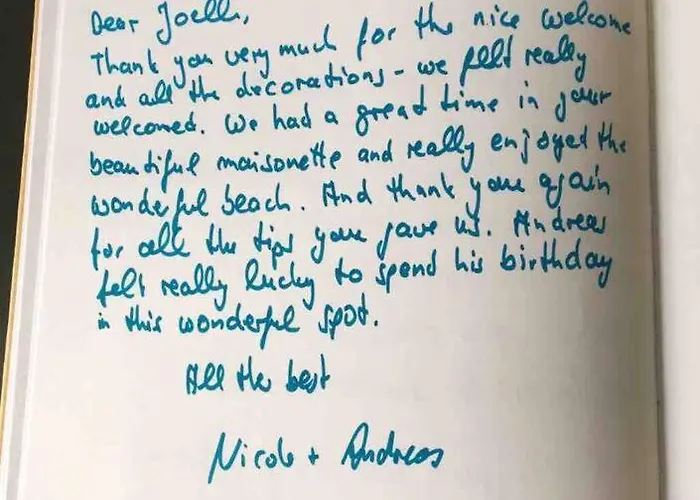 Dear Joelle,
Thank you very much for the nice welcome
and all the decorations - we felt really
welcomed. We had a great time in your
beautiful maisonette and really enjoyed the
wonderful beach. And thank you again
for all the tips you gave us. Andreas
felt really lucky to spend his birthday
in this wonderful spot.
All the best
Nicole + Andreas